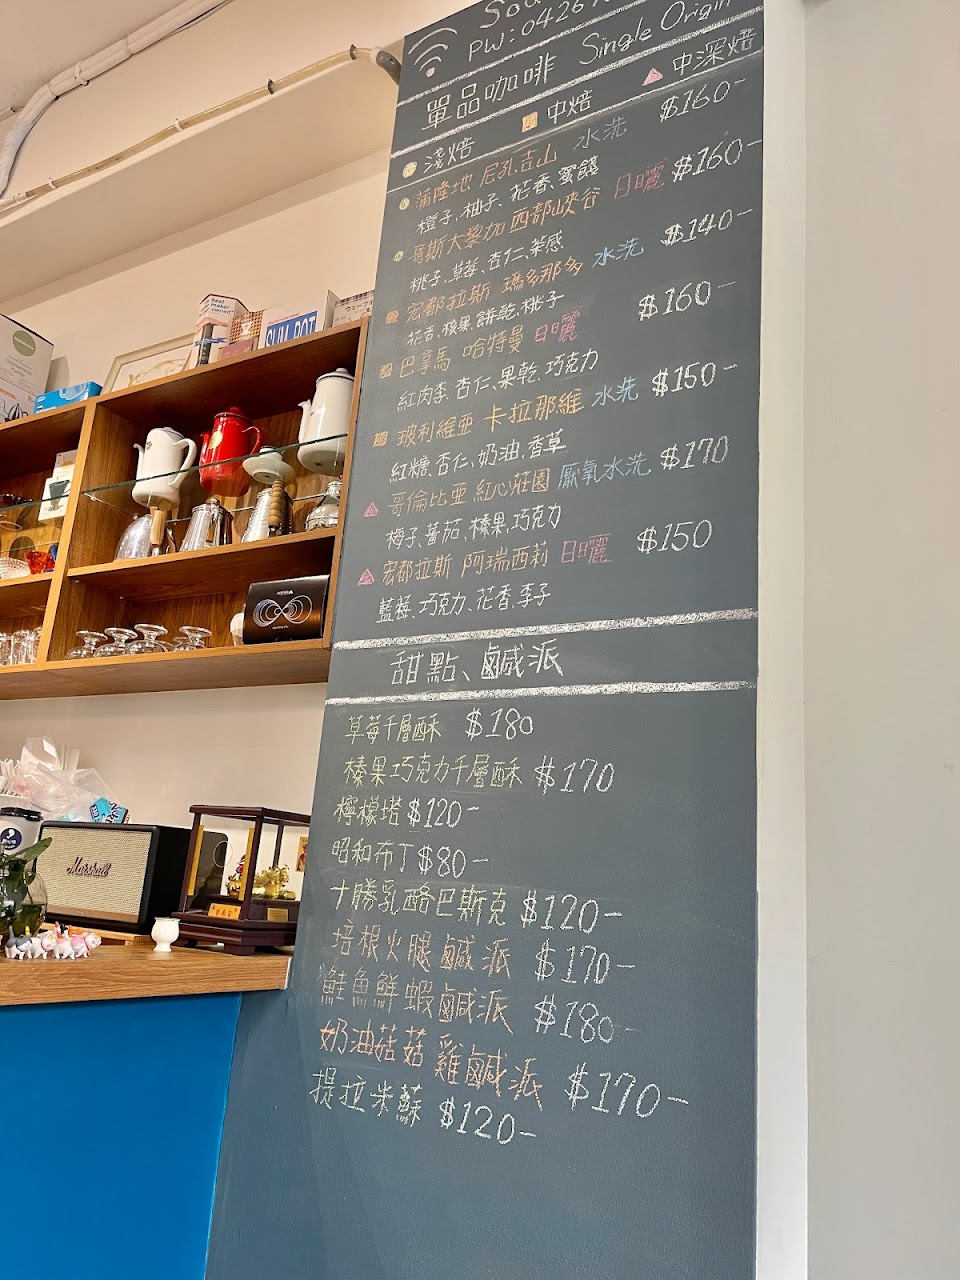 PW:0426
單品咖啡 Single Origin
淺焙 中焙 中深焙
蒲隆地 尼孔吉山 水洗 $160-
橙子、柚子、花香、蜜餞
哥斯大黎加 西部峽谷 日曬 $160-
桃子、草莓、杏仁、茶感
宏都拉斯 瑪多那多 水洗 $140-
花香、核果、餅乾、桃子
巴拿馬 哈特曼 日曬 $160-
紅肉李、杏仁、果乾、巧克力
玻利維亞 卡拉那維 水洗 $150-
紅糖、杏仁、奶油、香草
哥倫比亞 紅心莊園 厭氧水洗 $170
梅子、蕃茄、榛果、巧克力
宏都拉斯 阿瑞西莉 日曬 $150
藍莓、巧克力、花香、李子
甜點、鹹派
草莓千層酥 $180
榛果巧克力千層酥 $170
檸檬塔 $120-
昭和布丁 $80-
十勝乳酪巴斯克 $120-
培根火腿鹹派 $170-
鮭魚鮮蝦鹹派 $180-
奶油菇菇雞鹹派 $170-
提拉米蘇 $120-
best maker owned
SLIM POT
Marshall